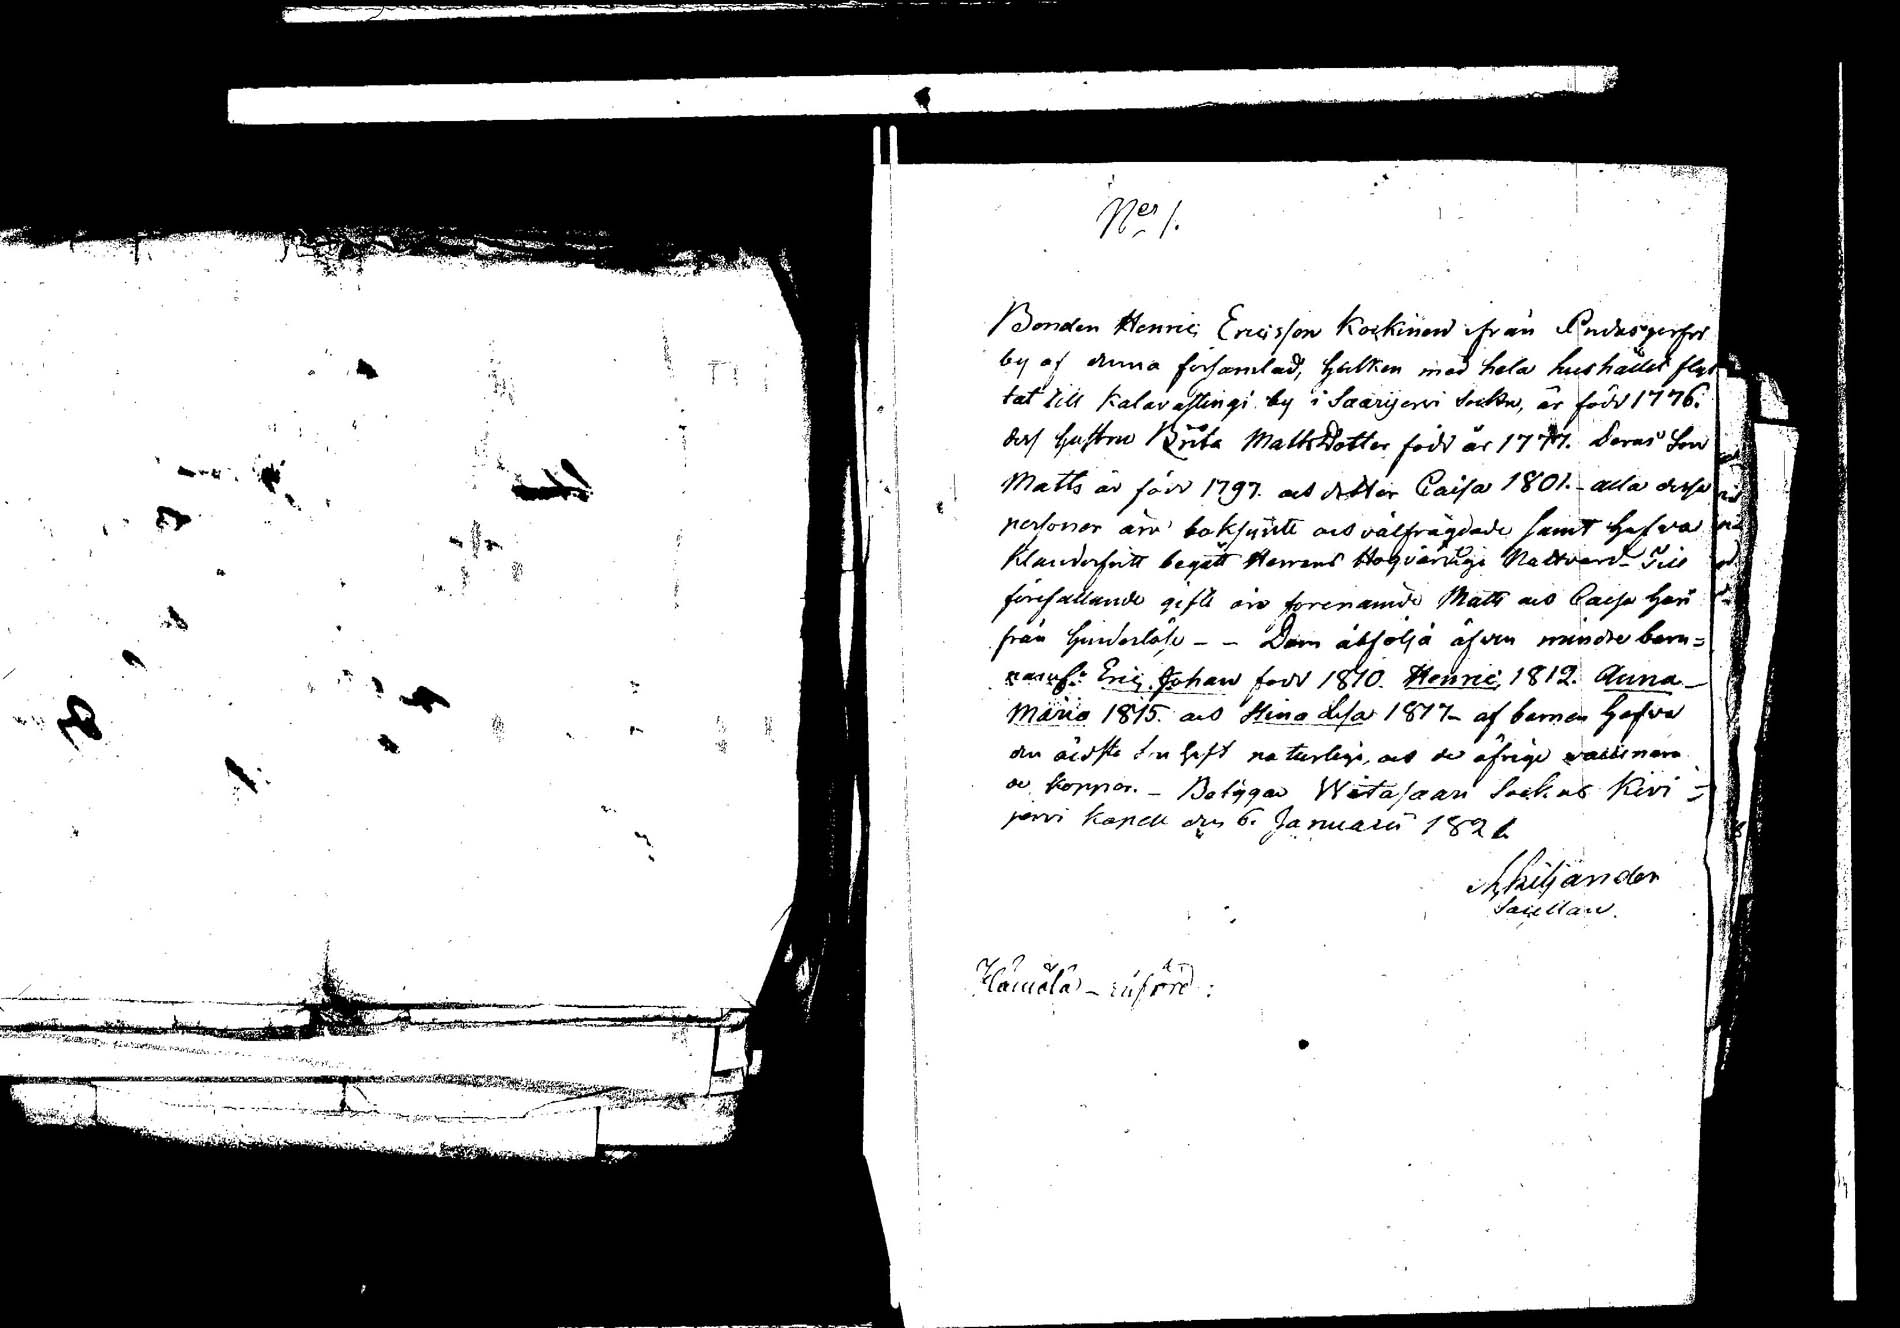 Nᵉʳ 1.
Bonden Henric Ericsson Kockinen ifrån
by af denna församlad, hvilken med hela hushållet flyt
tat till Kalavastingi by i Saarijervi Sockn, är född 1776.
dess hustru Brita Mattsdotter född år 1777. Deras Son
Matts är född 1797. och dotter Caisa 1801. – alla dessa
personer äro och välfrägdade samt hafva
klanderfritt begått Herrens Högvärdige Nattvard – Till
förefallande gifte äro förenämnde Matts och Caisa här
ifrån hinderlöse – – Dem åtfölja äfven mindre barn =
Eric Johan född 1810. Henric 1812. Anna
Maria 1815. och Stina Lisa 1817 – af barnen hafva
de äldste haft naturliga, och de öfrige vaccinera
de koppor. – Betygar Witasaari Sockns Kivi =
jervi Kapell den 6. Januarii 1821.
Kiljander
Sacellan.
Hämälä – införd :